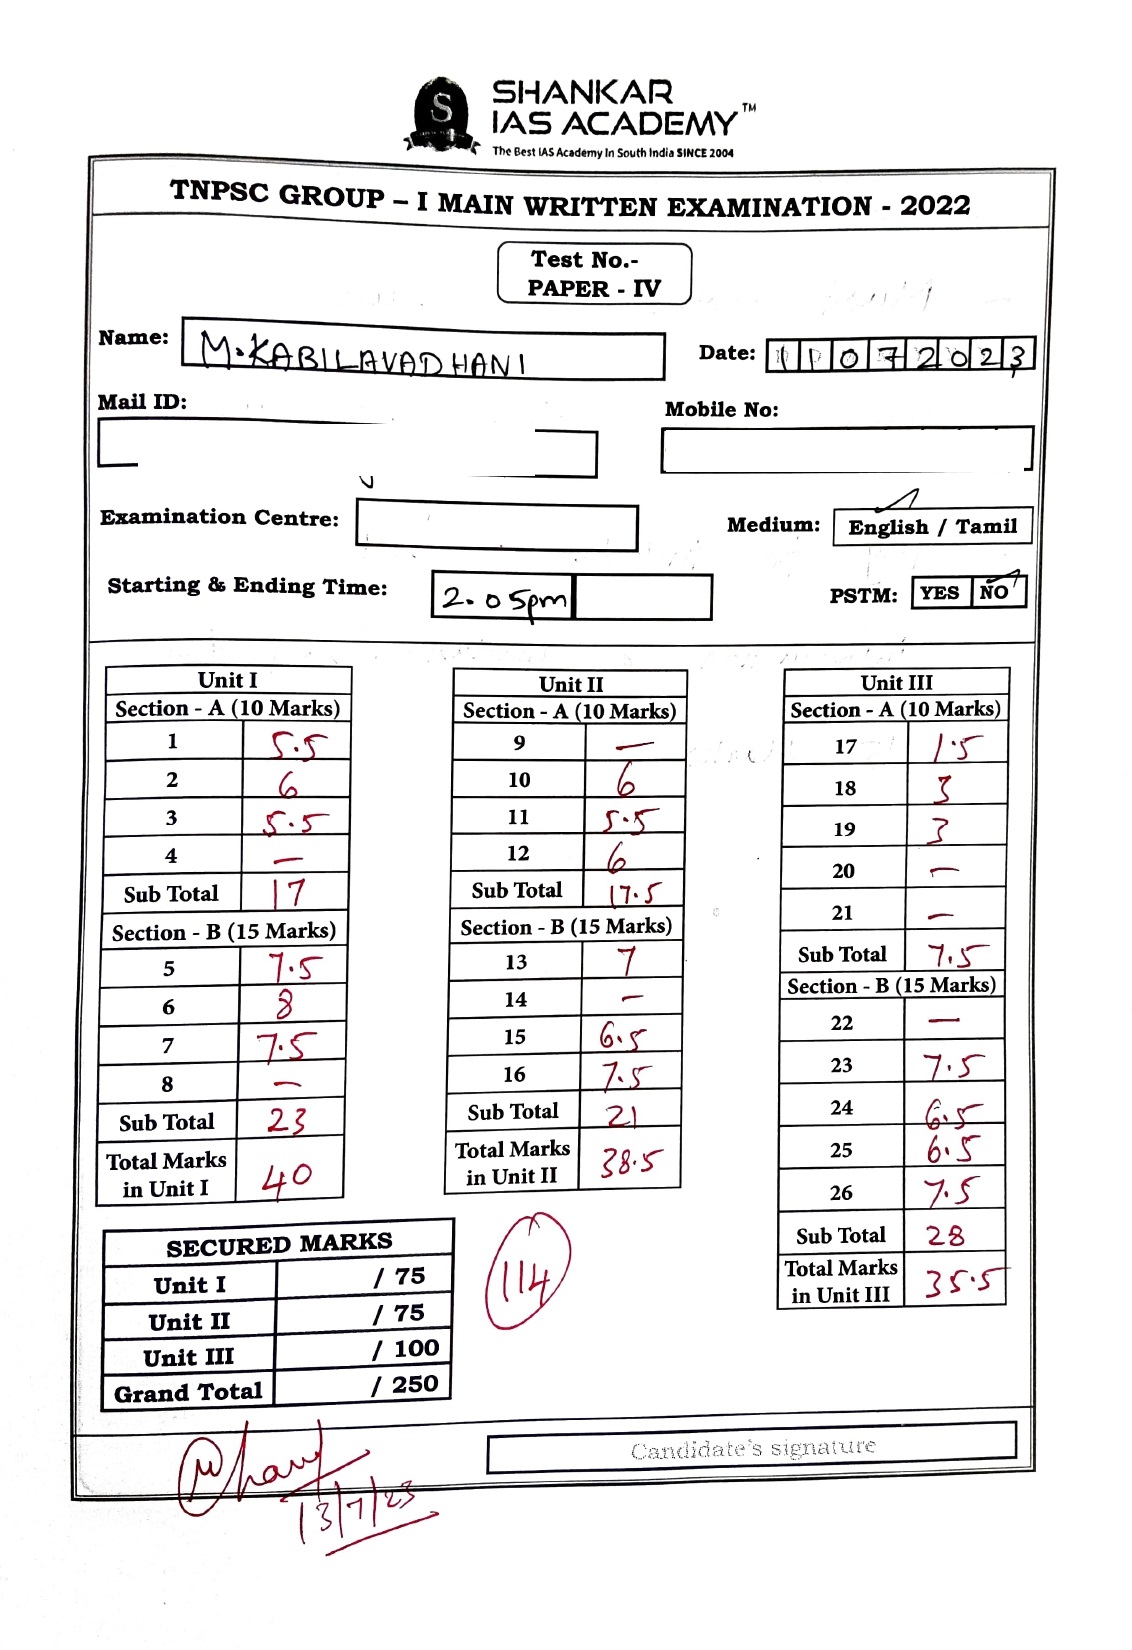 S
SHANKAR
IAS ACADEMY™
The Best IAS Academy In South India SINCE 2004
TNPSC GROUP – I MAIN WRITTEN EXAMINATION - 2022
Test No.-
PAPER - IV
Name: M.KABILAVADHANI
Date: 11072023
Mail ID:
Mobile No:
Examination Centre:
Medium: English / Tamil
Starting & Ending Time: 2.05pm
PSTM: YES NO
Unit I
Section - A (10 Marks)
1 5.5
2 6
3 5.5
4 –
Sub Total 17
Section - B (15 Marks)
5 7.5
6 8
7 7.5
8 –
Sub Total 23
Total Marks
in Unit I 40
Unit II
Section - A (10 Marks)
9 –
10 6
11 5.5
12 6
Sub Total 17.5
Section - B (15 Marks)
13 7
14 –
15 6.5
16 7.5
Sub Total 21
Total Marks
in Unit II 38.5
Unit III
Section - A (10 Marks)
17 1.5
18 3
19 3
20 –
21 –
Sub Total 7.5
Section - B (15 Marks)
22 –
23 7.5
24 6.5
25 6.5
26 7.5
Sub Total 28
Total Marks
in Unit III 35.5
SECURED MARKS
Unit I / 75
Unit II / 75
Unit III / 100
Grand Total / 250
114
Candidate's signature
13/7/23